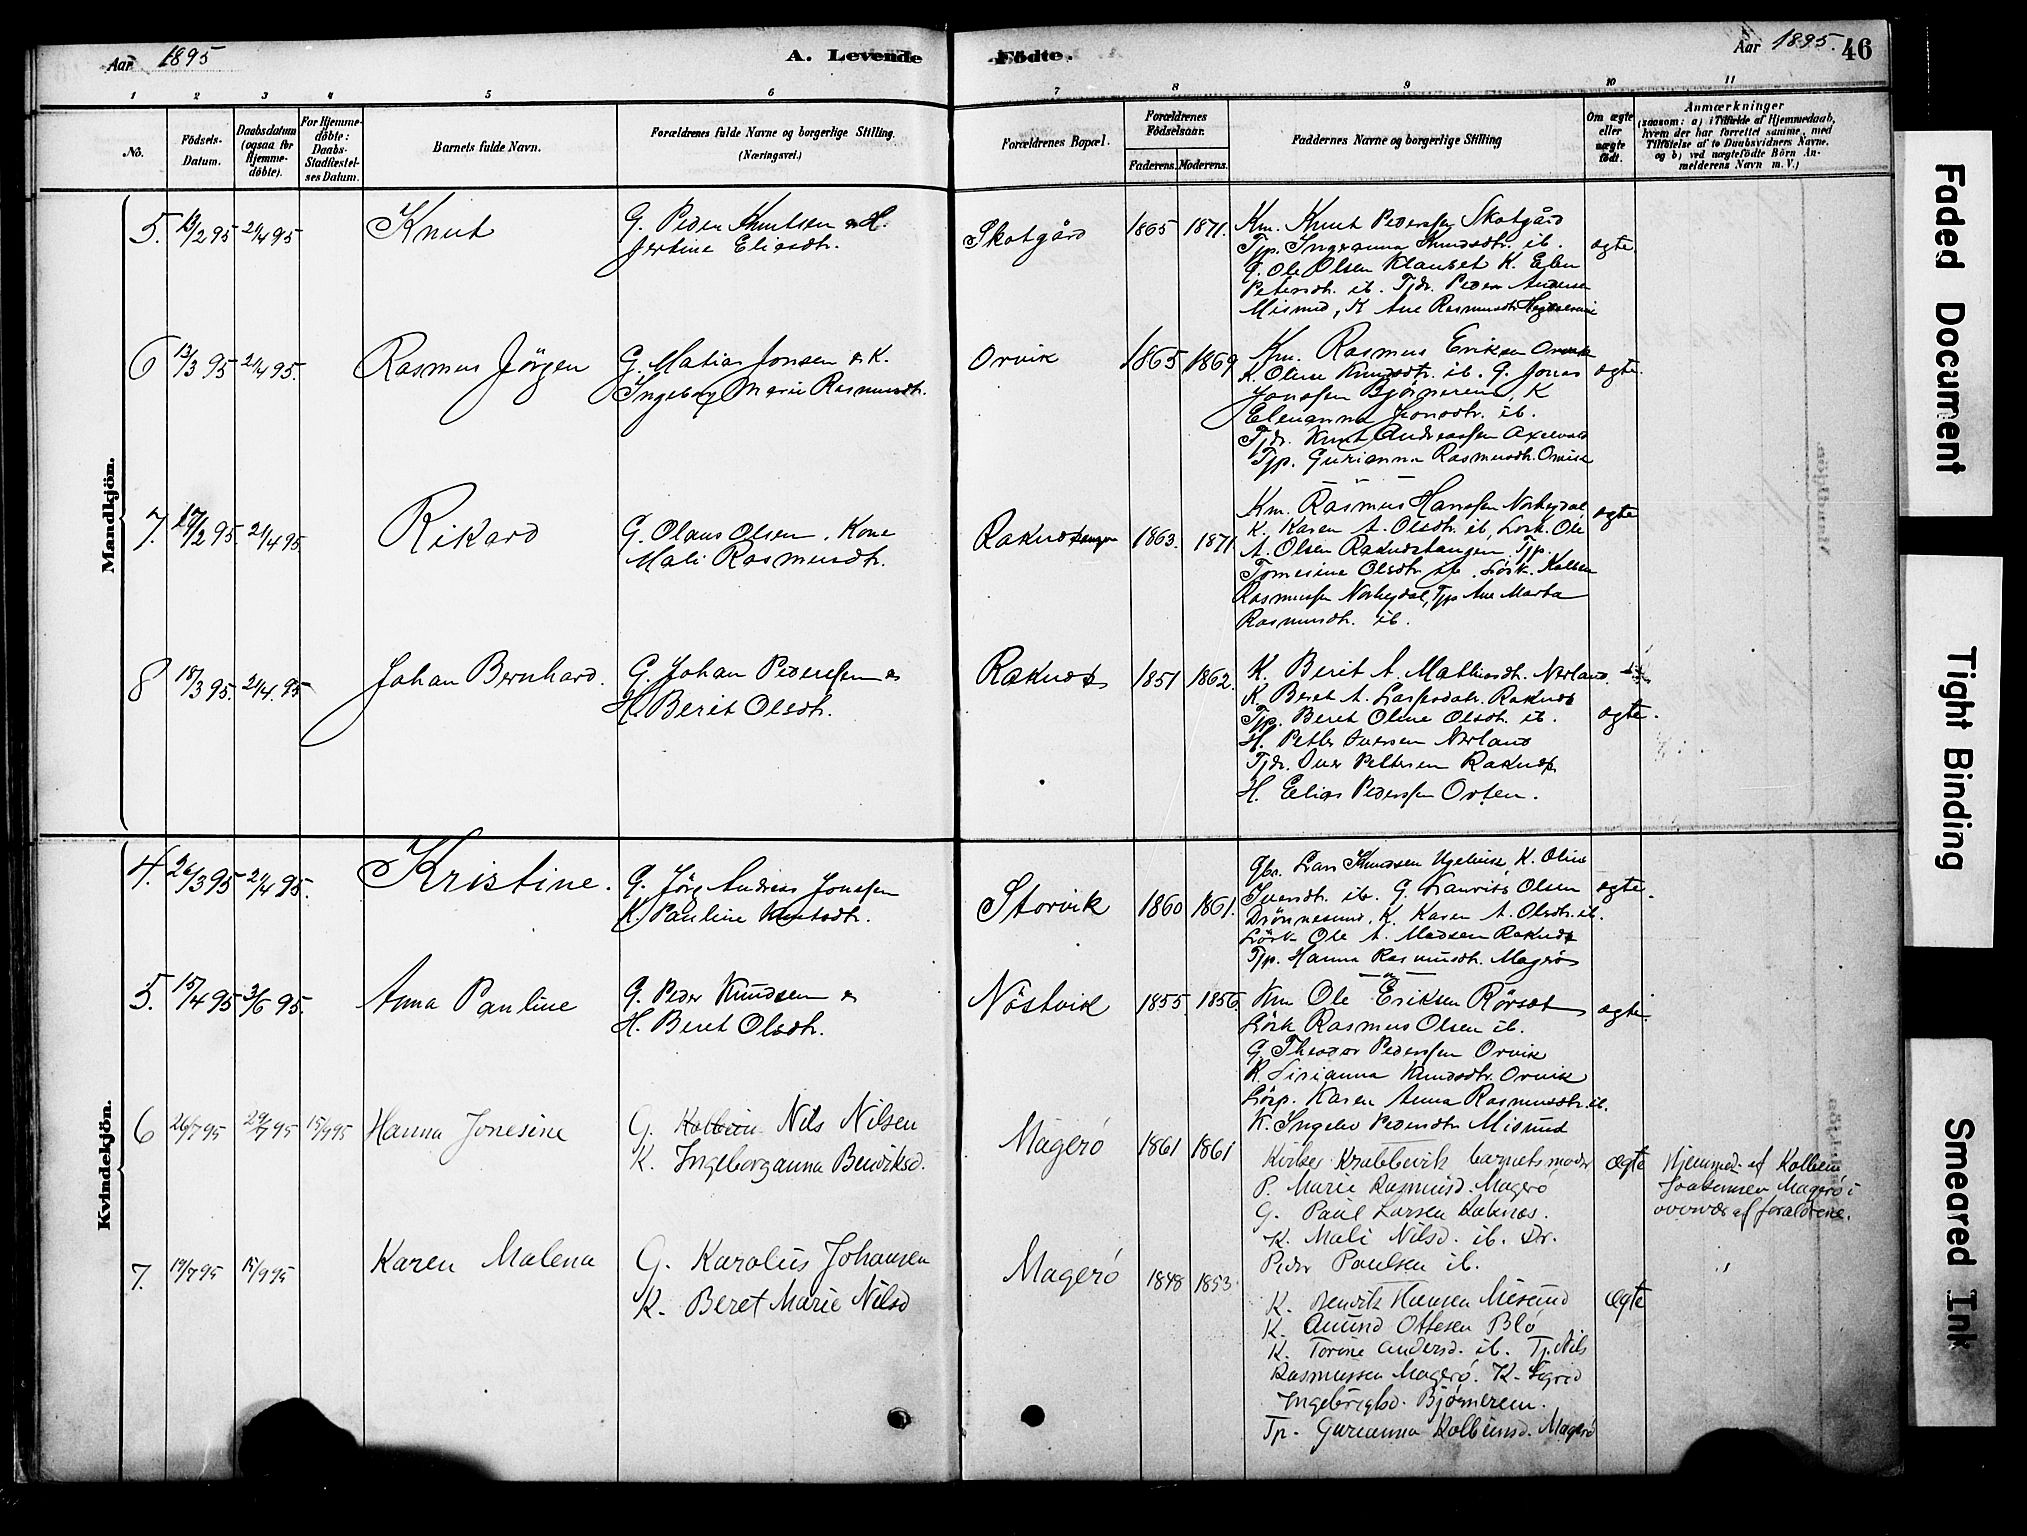 Aar 1895
A. Levende
Födte.
Aar 1895.
46
1 2 3 4 5 6 7 8 9 10 11
No.
Födsels-
Datum.
Daabsdatum
(ogsaa for
Hjemme-
döbte).
For Hjemme-
döbte:
Daabs-
Stadfæstel-
ses Datum.
Barnets fulde Navn.
Forældrenes fulde Navne og borgerlige Stilling.
(Næringsvei.)
Forældrenes Bopæl.
Forældrenes
Födselsaar.
Faderens. Moderens.
Faddernes Navne og borgerlige Stilling
Om ægte
eller
uægte
födt.
Anmærkninger
(saasom: a) i Tilfælde af Hjemmedaab,
hvem der har forrettet samme, med
Tilföielse af to Daabsvidners Navne.
og b) ved uægtefödte Börn An-
melderens Navn m. V.)
Mandkjön.
5. 13/2 95 21/4 95 Knut
G. Peder Knutsen & H.
Jertine Eliasdtr.
Skotgård 1865 1871.
Km. Knut Pederssen Skotgård
Tjp. Ingeranna Knudsdtr. ib.
G. Ole Olsen Klauset K. Elen
Petersdtr. ib. Tjdr. Peder Andersen
Misund, K Ane Rasmusdtr
ægte
6 13/3 95 21/4 95. Rasmus Jörgen
G. Matias Jonsen & K.
Ingeborg Marie Rasmusdtr.
Orvik 1865 1869
Km. Rasmus Eriksen Orvik
K. Oline Knudsdtr. ib. G. Jonas
Jonssen Bjørnerem, K
Elenanna Jonsdtr. ib.
Tjdr. Knut Andreassen
Tjp. Gurianna Rasmusdtr. Orvik
ægte.
7. 17/2 95. 21/4 95 Rikard
G. Olaus Olsen, Kone
Mali Rasmusdtr.
Raknestangen 1863. 1871
Km. Rasmus Hanssen
K. Karen A. Olsdtr. ib, Ole
A. Olsen Raknestangen, Tjp.
Tomesine Olsdtr ib.
Rasmussen Tjp Ane Marta
Rasmusdtr. ib.
ægte
8 18/3 95. 21/4 95 Johan Bernhard.
G. Johan Pederssen &
H. Berit Olsdtr.
Raknes 1851 1862.
K. Berit A. Mathiasdtr. Nerland.
K. Beret A. Raknes
Tjp. Beret Oline Olsdtr. ib.
H. Petter Iversen Nerland
Tjdr. Iver Pettersen Raknes
H. Elias Pederssen Orten.
ægte.
Kvindekjön.
4. 26/3 95 21/4 95. Kristine.
G. Jörg. Andreas Jonssen
K. Pauline Knutsdtr.
Storvik 1860 1861.
Lars Knudsen Ugelvik, K. Oline
Iversdtr. ib. G. Lauritz Olsen
Drönnesund, K. Karen A. Olsdtr. ib.
Ole A. Madsen Raknes
Tjp. Hanna Rasmusdtr. Magerö
ægte.
5. 15/4 95 3/6 95. Anna Pauline
G. Peder Knudsen &
H. Beret Olsdtr.
Nöstvik 1855. 1856.
Km Ole Eriksen Rörset
Rasmus Olsen ib.
G. Theodor Pederssen Orvik
K. Sirianna Knudsdtr. Orvik
Karen Anna Rasmusdtr. ib.
K. Ingebor Pedersdtr Misund
ægte.
6 26/7 95 29/7 95 15/9 95 Hanna Jonesine
G. Kolbein Nils Nilsen
K. Ingeborganna Benriksd.
Magerö 1861 1861
Krabbevik barnets moder
P. Marie Rasmusd. Magerö
G. Paul Larsen Raknes.
K. Mali Nilsd. ib. Dr.
Peder Paulsen ib.
Ægte
Hjemmed. af Kolbein
Magerö i
overvær af forældrene.
7. 19/7 95 15/9 95 Karen Malena
G. Karolus Johansen
K. Beret Marie Nilsd
Magerö 1848 1853.
K. Henrik Hansen Misund
K. Amund Ottesen Blö
K. Torine Andersd. ib. Tp. Nils
Rasmussen Magerö. K. Sigrid
Ingebrigtsd. Bjørnerem.
Tp. Gurianna Kolbeinsd. Magerö
Ægte
Faded Document
Tight Binding
Smeared Ink